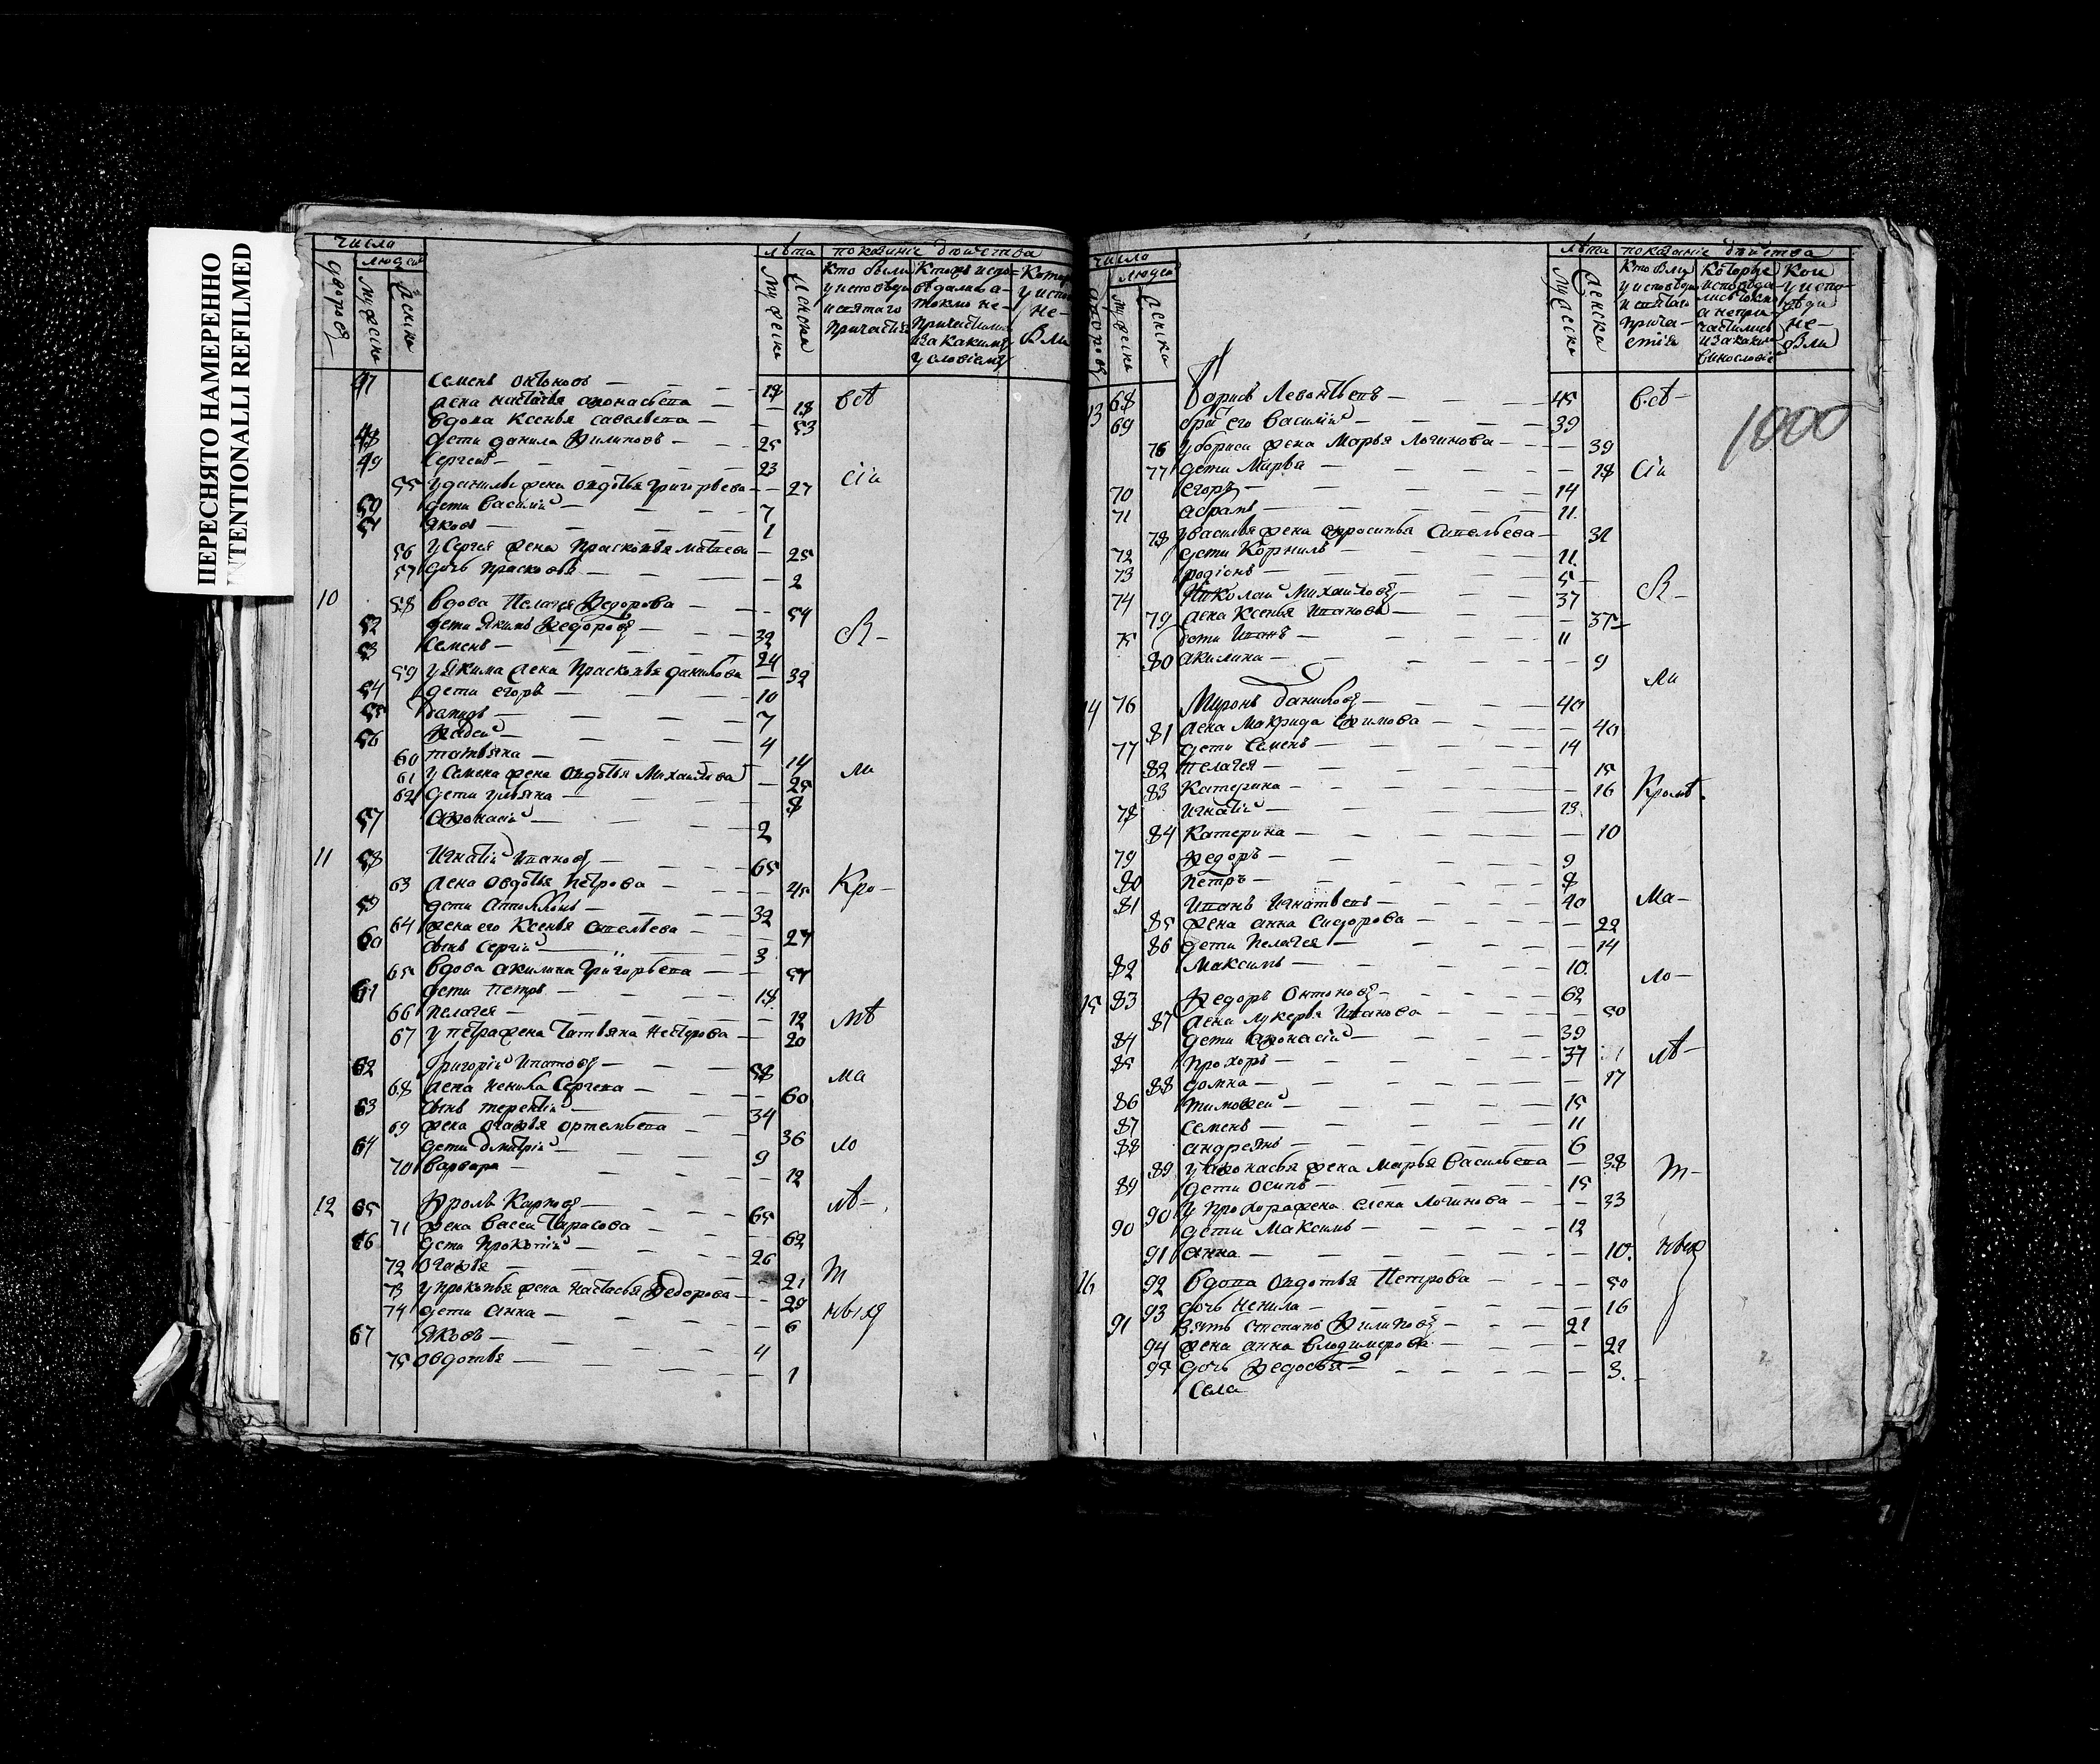 ПЕРЕСНЯТО НАМЕРЕННО
INTENTIONALLI REFILMED
числа
людей
дворовъ
мужеска
женска
лѣта
мужеска
женска
показаніе дѣйства
Кто были у исповеди и святаго Причастія
а токмо не Причастились
не были
47 Семенъ 18 всѣ
жена настасья афонасьева 18
вдова Ксенья савельева 53
48 дети данила Филиповъ 25
49 Сергей 23
55 у данилы жена овдотья Григорьева 27 сіи
50 дети василій 7
51 яковъ 1
56 у Сергея жена Прасковья 25
57 дочь Прасковья 2
10 58 вдова Пелагея Федорова 54
52 дети Якимъ Федоровъ 32
53 Семенъ 24
59 у Якима жена Прасковья данилова 32
54 дети егоръ 10
55 давидъ 7
56 4
60 татьяна 14
61 у Семена жена овдотья Михайлова 25 ли
62 дети ульяна 8
57 Афонасій 2
11 58 Игнатій ивановъ 65
63 жена овдотья Петрова 45 Кро
59 дети 32
64 жена его Ксенья савельева 27
60 сынъ Сергій 3
65 вдова акилина Григорьева 57
61 дети Петръ 18
66 Пелагея 12 мѣ
67 у Петра жена Татьяна Нестерова 20
62 Григорій 58 ма
68 жена Ненила Сергеева 60
63 сынъ терентій 34
69 жена огафья ортемьева 36
64 дети дмитрій 9 ло
70 варвара 12
12 65 Фролъ Карповъ 65 лѣ
71 жена васса Тарасова 62
66 дети Прокопій 26
72 огафья 21 т
73 у прокопья жена настасья Федорова 29
74 дети анна 6
67 Яковъ 4
75 овдотья 1
числа
людей
дворовъ
мужеска
женска
лѣта
мужеска
женска
показаніе дѣйства
Кои у исповеди не были
13 68 Борисъ Леонтьевъ 45 всѣ
1000
69 братъ его василій 39
76 у бориса жена Марья Логинова 39
77 дети Марва 18 сіи
70 егоръ 14
71 абрамъ 11
78 у василья жена Савельева 31
72 дети Корнилъ 11
73 родіонъ 5
74 Николай Михайловъ 37
79 жена Ксенья Иванова 35
75 дети Иванъ 11
80 акилина 9
ли
14 76 Миронъ даниловъ 40
81 жена Макрида ефимова 40
77 дети Семенъ 14
82 пелагея 15
83 Катерина 16 Кромѣ
78 Игнатій 13
84 Катерина 10
79 Федоръ 9
80 Петръ 8
81 Иванъ Игнатьевъ 40 ма
85 жена анна Сидорова 22
86 дети Пелагея 14
82 Максимъ 10 ло
15 83 Федоръ Онтоновъ 62
87 жена лукерья Иванова 50
84 дети афонасій 39
85 Прохоръ 37 лѣ
88 домна 17
86 тимофей 15
87 Семенъ 11
88 андреянъ 6
89 у афонасья жена Марья васильева 38 т
89 дети осипъ 15
90 у Прохора жена елена Логинова 33
90 дети Максимъ 12
91 анна 10
16 92 вдова овдотья Петрова 50
93 дочь Ненила 16
91 зять степанъ Филиповъ 21
94 жена анна владимерова 22
95 дочь Федосья 3
Села